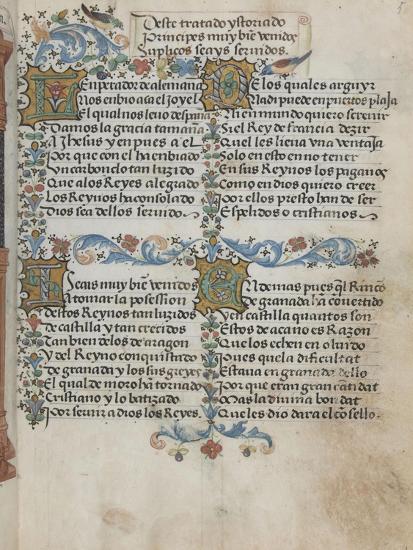 Deste tratado ystoriado
Principes muy biē venidos
Suplicos seays seruidos.
Enperador de alemana
Nos enbio aca el Joyel
El qual nos leuo despaña
Damos la gracia tamaña
A Jhesus y en pues a el
Por que con el ha enbiado
Un carboncol tan luzido
Que alos Reyes alegrado
Los Reynos ha consolado
Dios sea dellos seruido.
Seas muy biē venidos
A tomar la posession
destos Reynos tan luzidos
de castilla y tan crecidos
Tan bien delos de aragon
y del Reyno conquistado
de granada y los sus greyes
El qual de moro hā tornado
Cristiano y lo batizado
por seruir a dios los Reyes.
De los quales arguyr
Nadi puede en puertos plaja
Ni en mundo quiero sereuir
Si el Rey de francia dezir
Quel les lieua una ventaja
Solo en esto en no tener
En sus Reynos los paganos
Como en dios quiero creer
Por ellos presto han de ser
Espelidos o cristianos.
Ende mas pues ql Rincō
de granada hā conuertido
y en castilla quantos son
Estos de aca no es Razon
Quelos echen en oluido
pues quela dificultat
Estaua en granada dello
por que eran gran cantidat
Mas la diuina bondat
Que les dio dara el cōsello.